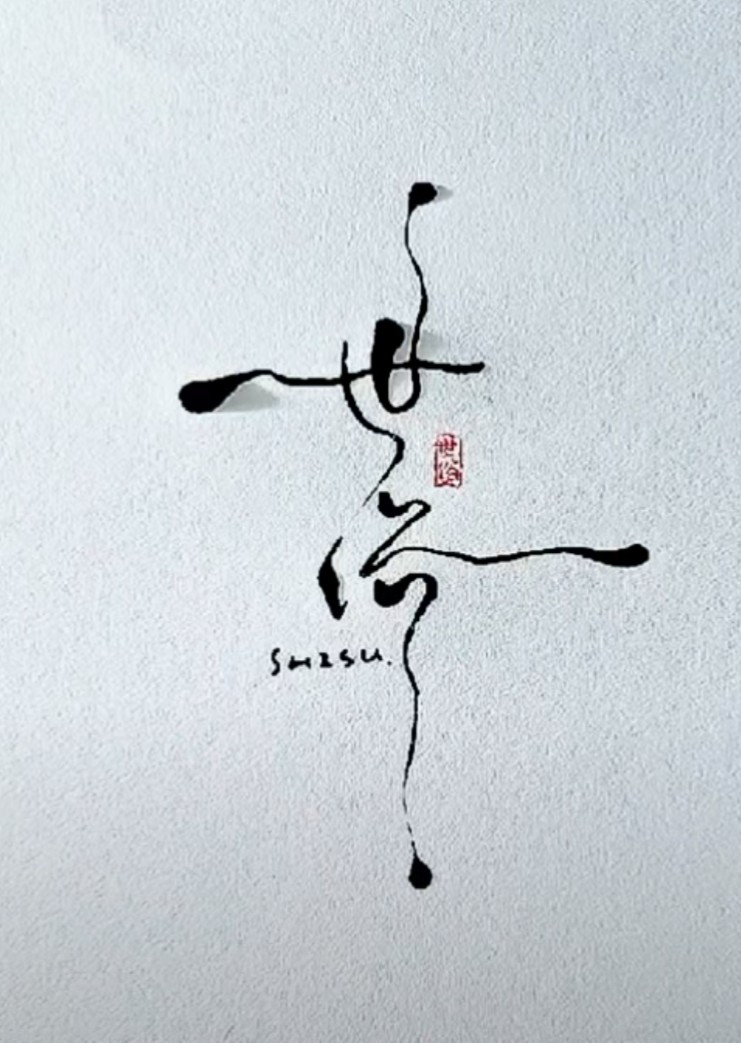 世俗
世俗
SHISU.